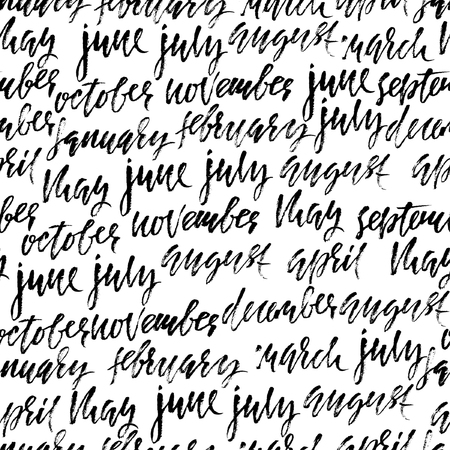 may june july august march
mber october november june septem
mber january february july decem
pril may june july august ap
ber october november may septem
june july august april may
october november december august
nuary february march july
april may june july august
nuary february march april